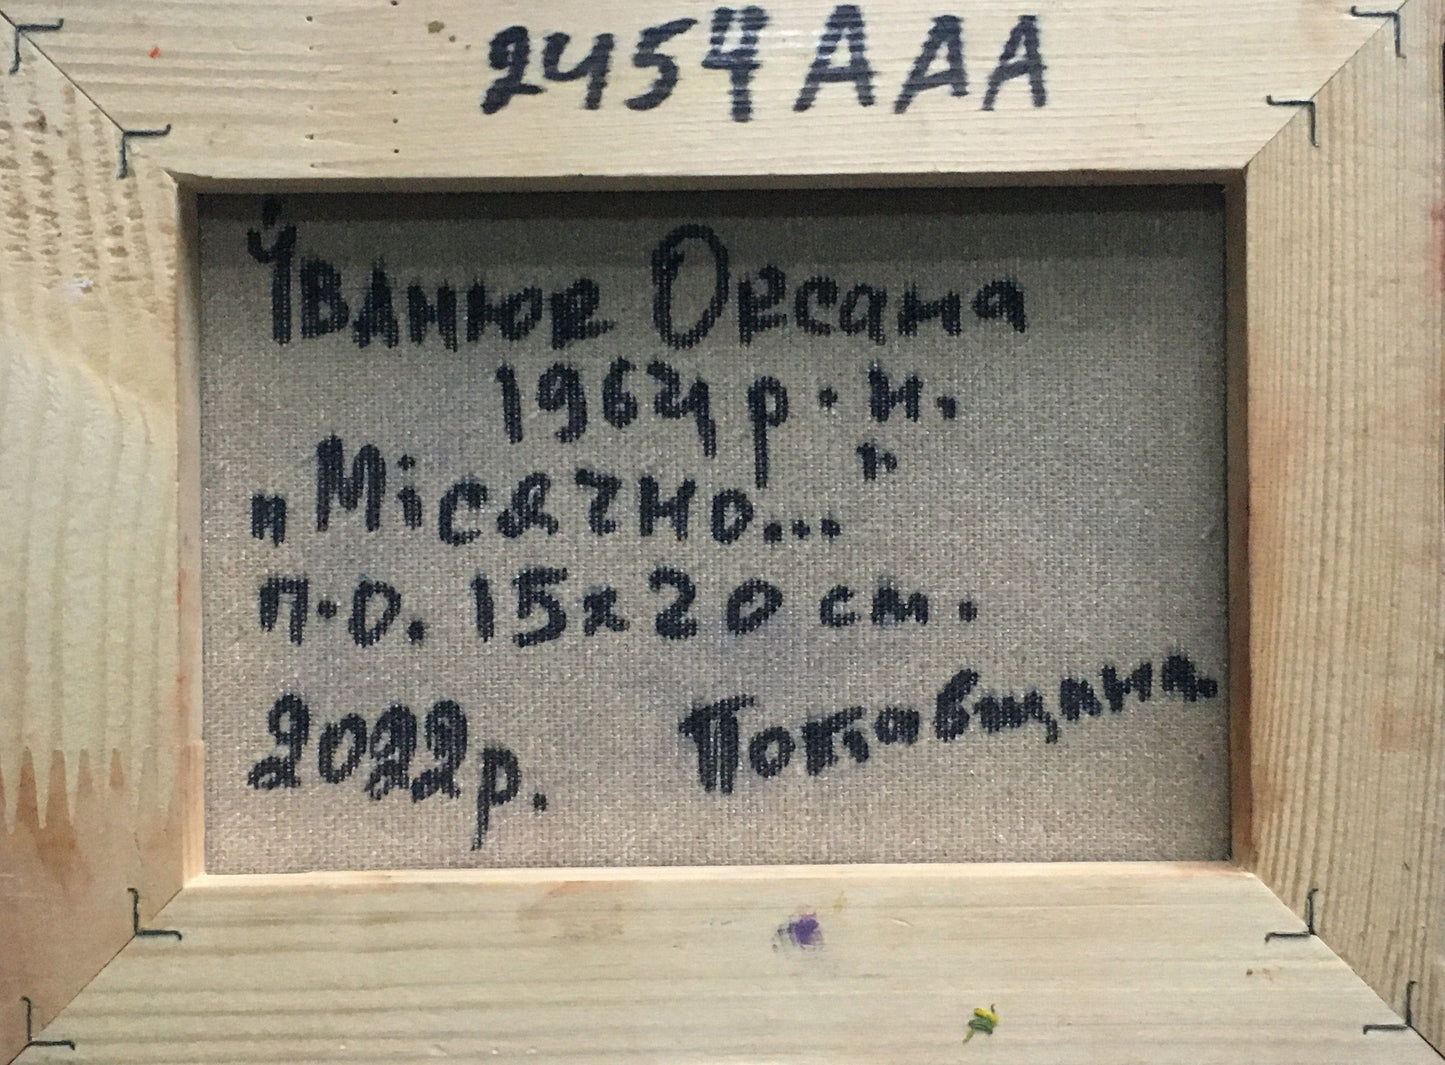 2454 AAA
Іванюк Оксана
1964 р. н.
„Місячно..."
п.о. 15х20 см.
2022р. Полтавщина.